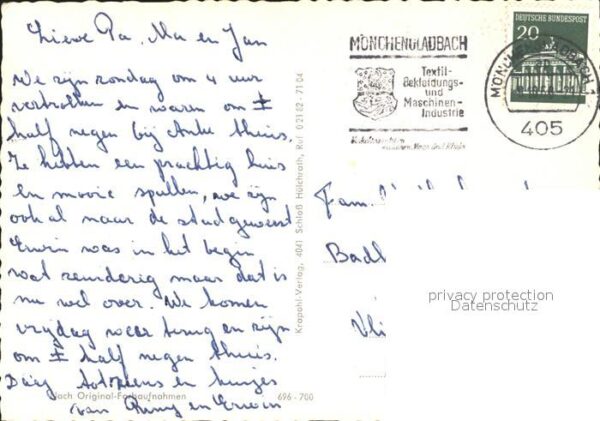 Lieve Pa, Ma en Jan
We zijn zondag om 4 uur
vertrokken en waren om ±
half negen bij Anke thuis.
Ze hebben een prachtig huis
en mooie spullen, we zijn
ook al naar de stad geweest
Erwin was in het begin
wat zeurderig maar dat is
nu wel over. We komen
vrijdag weer terug en zijn
om ± half negen thuis.
Daag en kusjes
van en Erwin
Nach Original-Farbaufnahmen 696-700
Krapohl-Verlag, 4041 Schloß Hülchrath, Ruf 0 21 82 - 71 04
MÖNCHENGLADBACH
Textil-
Bekleidungs-
und
Maschinen-
Industrie
zwischen Maas und Rhein
MÖNCHENGLADBACH 1
405
DEUTSCHE BUNDESPOST
20
Fam
Badl
Vli
privacy protection
Datenschutz